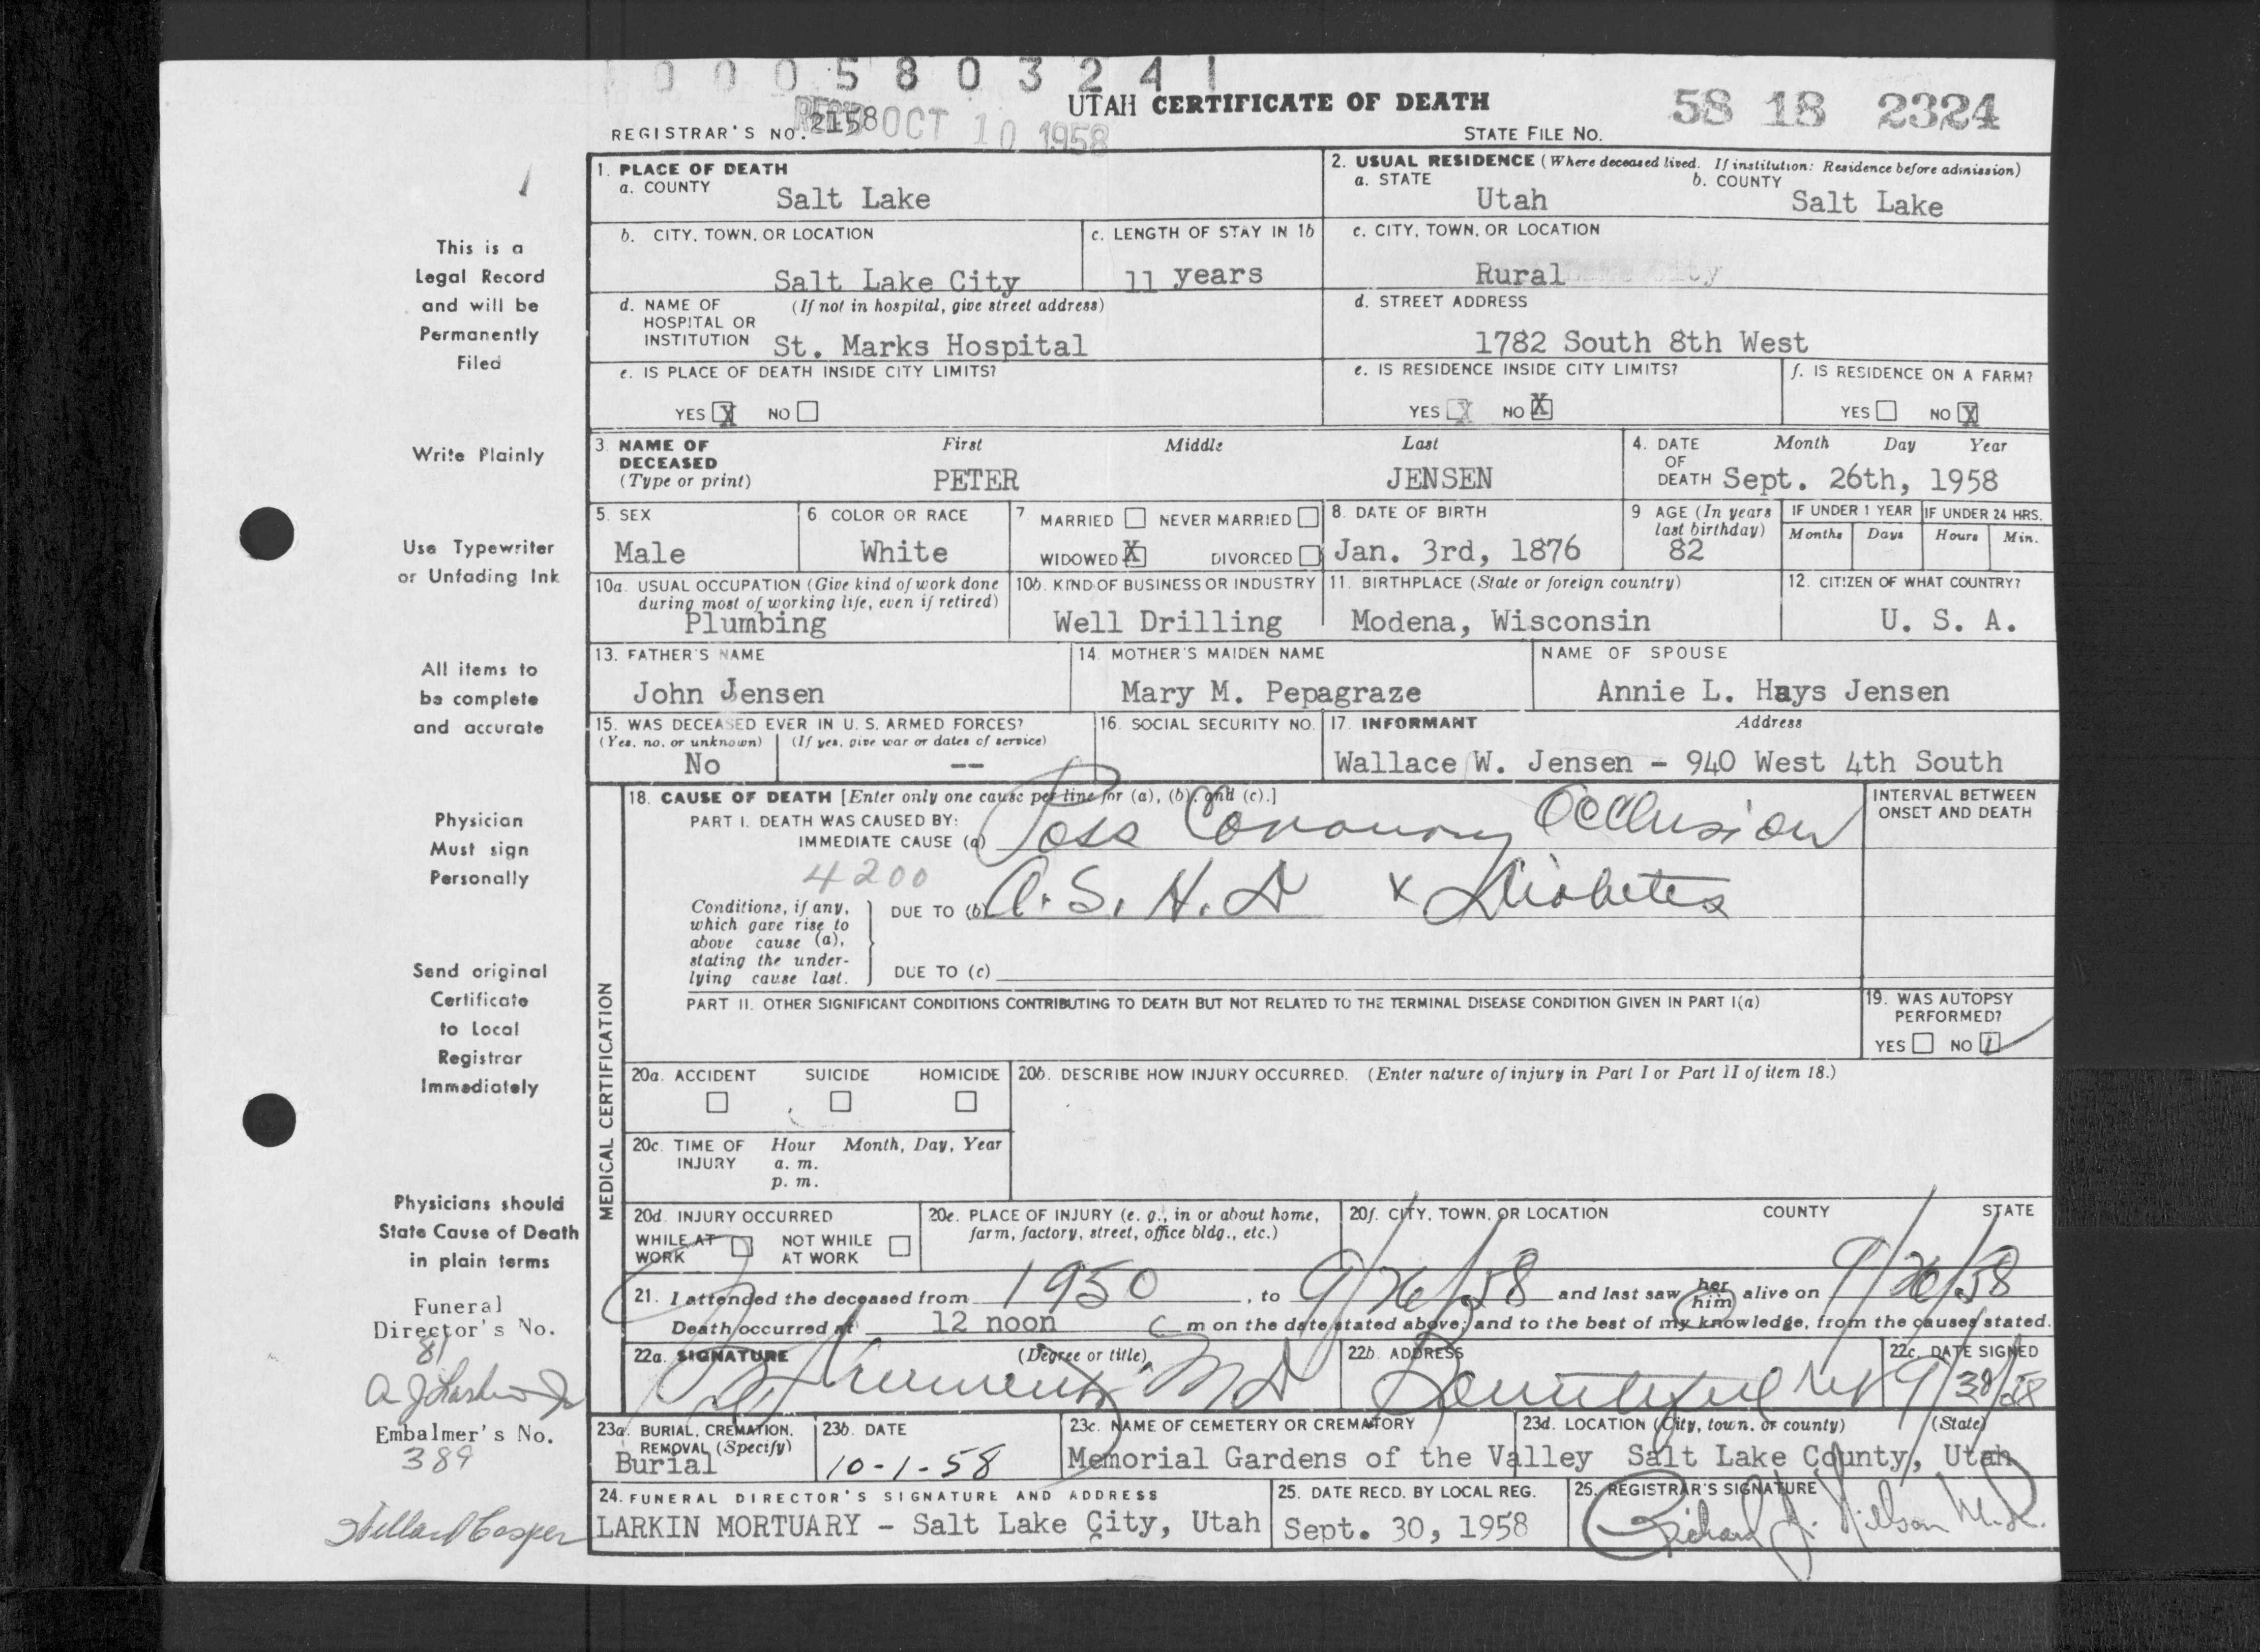 0 0 0 5 8 0 3 2 4 1
UTAH CERTIFICATE OF DEATH
REGISTRAR'S NO. 2158 OCT 10 1958
STATE FILE NO. 58 18 2324
1. PLACE OF DEATH
a. COUNTY
Salt Lake
2. USUAL RESIDENCE (Where deceased lived. If institution: Residence before admission)
a. STATE
Utah
b. COUNTY
Salt Lake
b. CITY, TOWN, OR LOCATION
Salt Lake City
c. LENGTH OF STAY IN 1b
11 years
c. CITY, TOWN, OR LOCATION
Rural
d. NAME OF HOSPITAL OR INSTITUTION
(If not in hospital, give street address)
St. Marks Hospital
d. STREET ADDRESS
1782 South 8th West
e. IS PLACE OF DEATH INSIDE CITY LIMITS?
YES X NO
e. IS RESIDENCE INSIDE CITY LIMITS?
YES X NO X
f. IS RESIDENCE ON A FARM?
YES NO X
3. NAME OF DECEASED
(Type or print)
First Middle Last
PETER JENSEN
4. DATE OF DEATH
Month Day Year
Sept. 26th, 1958
5. SEX
Male
6. COLOR OR RACE
White
7. MARRIED NEVER MARRIED
WIDOWED X DIVORCED
8. DATE OF BIRTH
Jan. 3rd, 1876
9. AGE (In years last birthday)
82
IF UNDER 1 YEAR
Months Days
IF UNDER 24 HRS.
Hours Min.
10a. USUAL OCCUPATION (Give kind of work done during most of working life, even if retired)
Plumbing
10b. KIND OF BUSINESS OR INDUSTRY
Well Drilling
11. BIRTHPLACE (State or foreign country)
Modena, Wisconsin
12. CITIZEN OF WHAT COUNTRY?
U. S. A.
13. FATHER'S NAME
John Jensen
14. MOTHER'S MAIDEN NAME
Mary M. Pepagraze
NAME OF SPOUSE
Annie L. Hays Jensen
15. WAS DECEASED EVER IN U. S. ARMED FORCES?
(Yes, no, or unknown) (If yes, give war or dates of service)
No --
16. SOCIAL SECURITY NO.
17. INFORMANT Address
Wallace W. Jensen - 940 West 4th South
18. CAUSE OF DEATH [Enter only one cause per line for (a), (b), and (c).]
PART I. DEATH WAS CAUSED BY:
IMMEDIATE CAUSE (a) Poss Coronary Occlusion
INTERVAL BETWEEN ONSET AND DEATH
4200
Conditions, if any, which gave rise to above cause (a), stating the underlying cause last.
DUE TO (b) A. S. H. D x Diabetes
DUE TO (c)
PART II. OTHER SIGNIFICANT CONDITIONS CONTRIBUTING TO DEATH BUT NOT RELATED TO THE TERMINAL DISEASE CONDITION GIVEN IN PART I(a)
19. WAS AUTOPSY PERFORMED?
YES NO
MEDICAL CERTIFICATION
20a. ACCIDENT SUICIDE HOMICIDE
20b. DESCRIBE HOW INJURY OCCURRED. (Enter nature of injury in Part I or Part II of item 18.)
20c. TIME OF INJURY
Hour Month, Day, Year
a. m.
p. m.
20d. INJURY OCCURRED
WHILE AT WORK NOT WHILE AT WORK
20e. PLACE OF INJURY (e. g., in or about home, farm, factory, street, office bldg., etc.)
20f. CITY, TOWN, OR LOCATION COUNTY STATE
21. I attended the deceased from 1950, to 9/26/58 and last saw her him alive on 9/26/58
Death occurred at 12 noon m on the date stated above; and to the best of my knowledge, from the causes stated.
22a. SIGNATURE (Degree or title)
MD
22b. ADDRESS
Bountiful Ut
22c. DATE SIGNED
9/30/58
23a. BURIAL, CREMATION, REMOVAL (Specify)
Burial
23b. DATE
10-1-58
23c. NAME OF CEMETERY OR CREMATORY
Memorial Gardens of the Valley
23d. LOCATION (City, town, or county) (State)
Salt Lake County, Utah
24. FUNERAL DIRECTOR'S SIGNATURE AND ADDRESS
LARKIN MORTUARY - Salt Lake City, Utah
25. DATE RECD. BY LOCAL REG.
Sept. 30, 1958
25. REGISTRAR'S SIGNATURE
Richard J. Nilson M.D.
This is a
Legal Record
and will be
Permanently
Filed
Write Plainly
Use Typewriter
or Unfading Ink
All items to
be complete
and accurate
Physician
Must sign
Personally
Send original
Certificate
to Local
Registrar
Immediately
Physicians should
State Cause of Death
in plain terms
Funeral
Director's No.
81
A J Larkin Jr
Embalmer's No.
389
Willard Casper